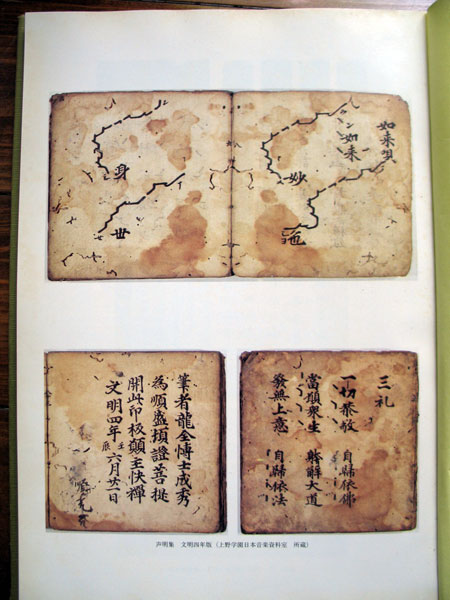 如来唄
如来
妙
身
世
三礼
一切恭敬 自歸依佛
當願衆生 躰解大道
發無上意 自歸依法
筆者龍全博士成秀
為順盛頓證菩提
開此印板願主快禅
文明四年壬辰六月廿一日
声明集 文明四年版(上野学園日本音楽資料室 所蔵)